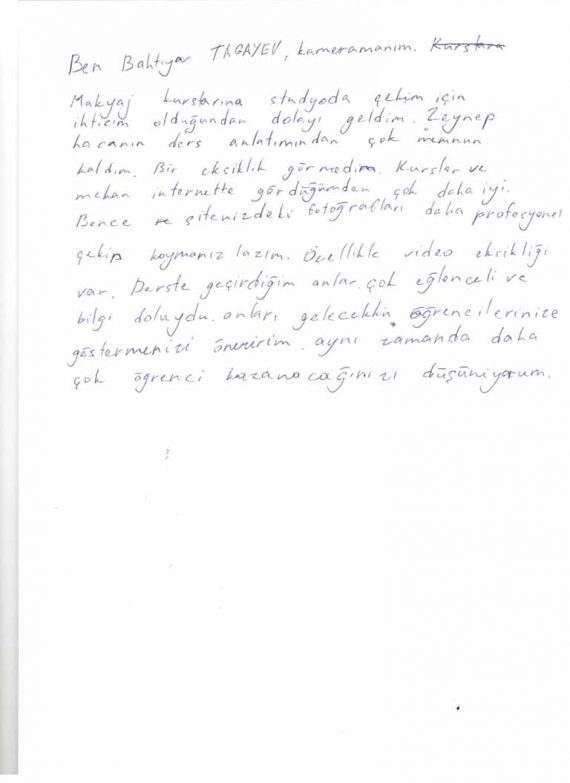 Ben Bahtıyar TAGAYEV, kameramanım. Kurslara
Makyaj kurslarına studyoda çekim için
ihticim olduğundan dolayı geldim. Zeynep
hacanın ders anlatımından çok memnun
kaldım. Bir eksiklik görmedim. Kurslar ve
mekan internette gördüğümden çok daha iyi.
Bence ve sitenizdeki fotoğrafları daha profesyonel
çekip koymanız lazım. Özellikle video eksikliği
var. Derste geçirdiğim anlar çok eğlenceli ve
bilgi doluydu. onları gelecekkin öğrencilerinize
göstermenizi öneririm. aynı zamanda daha
çok öğrenci kazanacağınızı düşünüyorum.